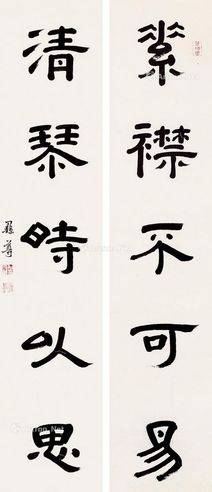 素襟不可易
清琴時以思